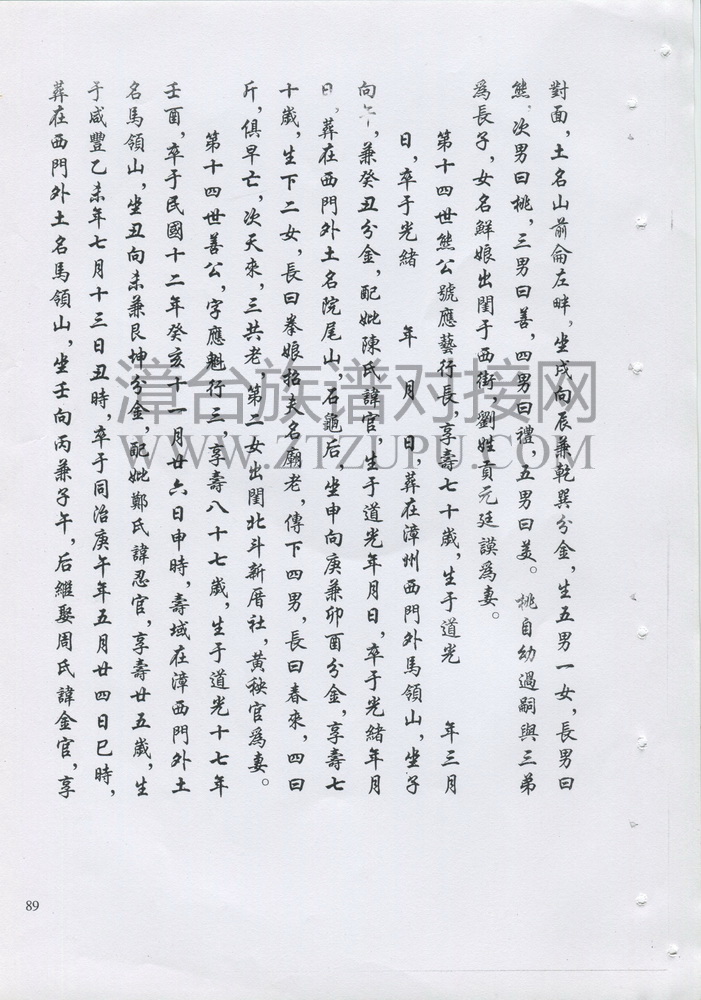 對面，土名山前侖左畔，坐戌向辰兼乾巽分金，生五男一女，長男曰
熊，次男曰桃，三男曰善，四男曰禮，五男曰美。桃自幼過嗣與三弟
爲長子，女名鮮娘出閨于西街，劉姓貢元廷謨爲妻。
第十四世熊公號應藝行長，享壽七十歲，生于道光 年三月
日，卒于光緒 年 月 日，葬在漳州西門外馬領山，坐子
向午，兼癸丑分金，配妣陳氏諱官，生于道光年月日，卒于光緒年月
日，葬在西門外土名院尾山，石龜后，坐申向庚兼卯酉分金，享壽七
十歲，生下二女，長曰拳娘招夫名廟老，傳下四男，長曰春來，四曰
斤，俱早亡，次天來，三共老，第二女出閨北斗新厝社，黄秧官爲妻。
第十四世善公，字應魁行三，享壽八十七歲，生于道光十七年
壬酉，卒于民國十二年癸亥十一月廿六日申時，壽域在漳西門外土
名馬領山，坐丑向未兼艮坤分金，配妣鄭氏諱忍官，享壽廿五歲，生
于咸豐乙未年七月十三日丑時，卒于同治庚午年五月廿四日巳時，
葬在西門外土名馬領山，坐壬向丙兼子午，后繼娶周氏諱金官，享
漳台族谱对接网
WWW.ZTZUPU.COM
89